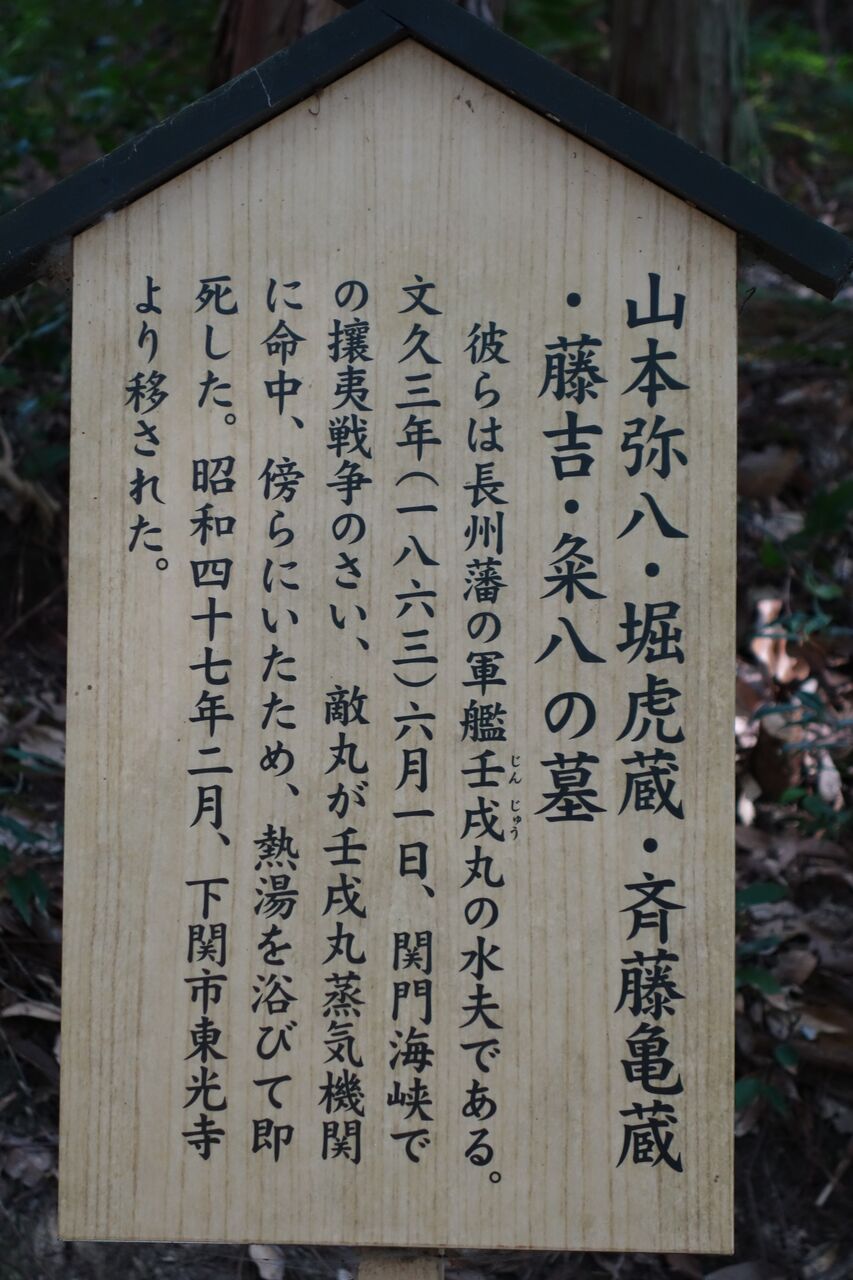 山本弥八・堀虎蔵・斉藤亀蔵
・藤吉・粂八の墓
彼らは長州藩の軍艦壬戌丸の水夫である。
じんじゅう
文久三年(一八六三)六月一日、関門海峡で
の攘夷戦争のさい、敵丸が壬戌丸蒸気機関
に命中、傍らにいたため、熱湯を浴びて即
死した。昭和四十七年二月、下関市東光寺
より移された。